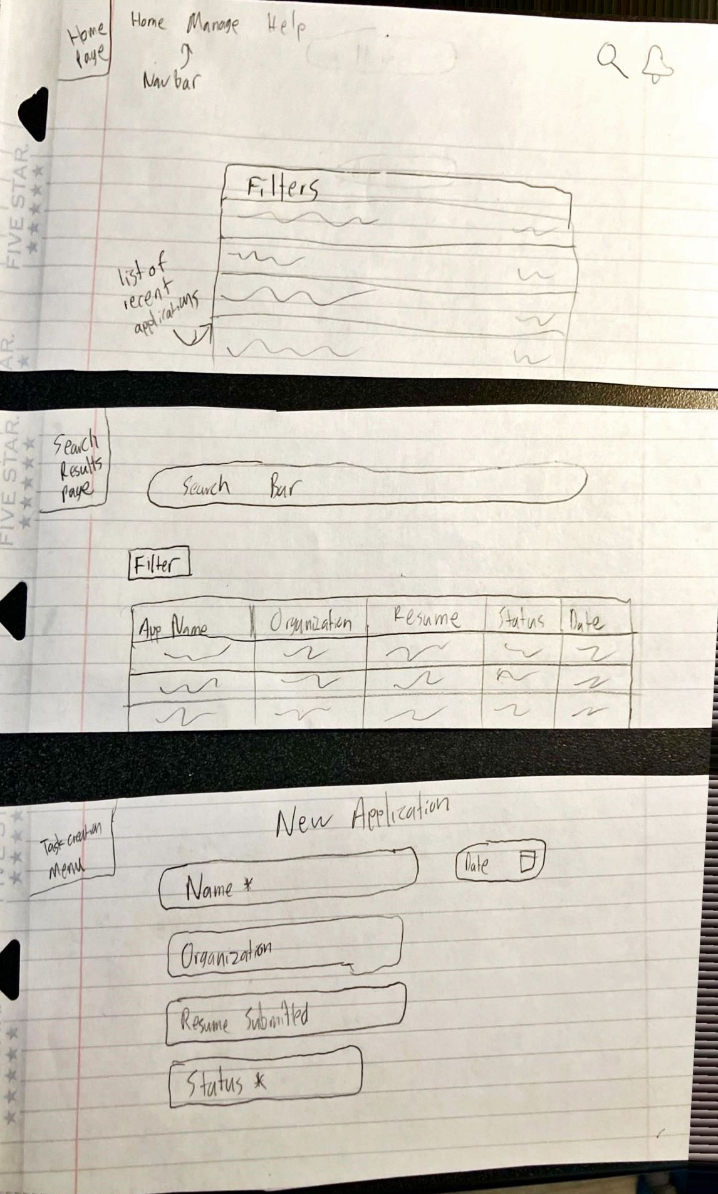 Home
Page
Home Manage Help
Navbar
FIVE STAR.
Filters
list of
recent
applications
Search
Results
Page
FIVE STAR.
Search Bar
Filter
App Name Organization Resume Status Date
Task creation
Menu
New Application
Name *
Date
Organization
Resume Submitted
Status *